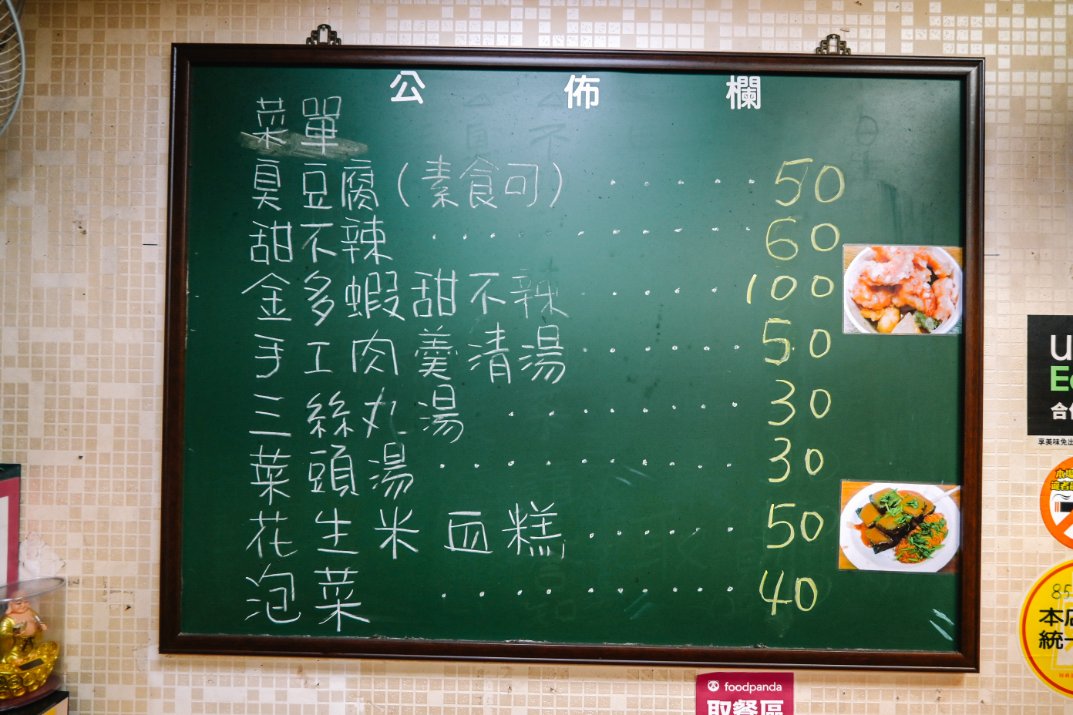 公佈欄
菜單
臭豆腐(素食可)······50
甜不辣·········60
金多蝦甜不辣······100
手工肉羹清湯·······50
三絲丸湯········30
菜頭湯·········30
花生米血糕······50
泡菜·········40
foodpanda
取餐區
合
享美味免出
85
本店
統一